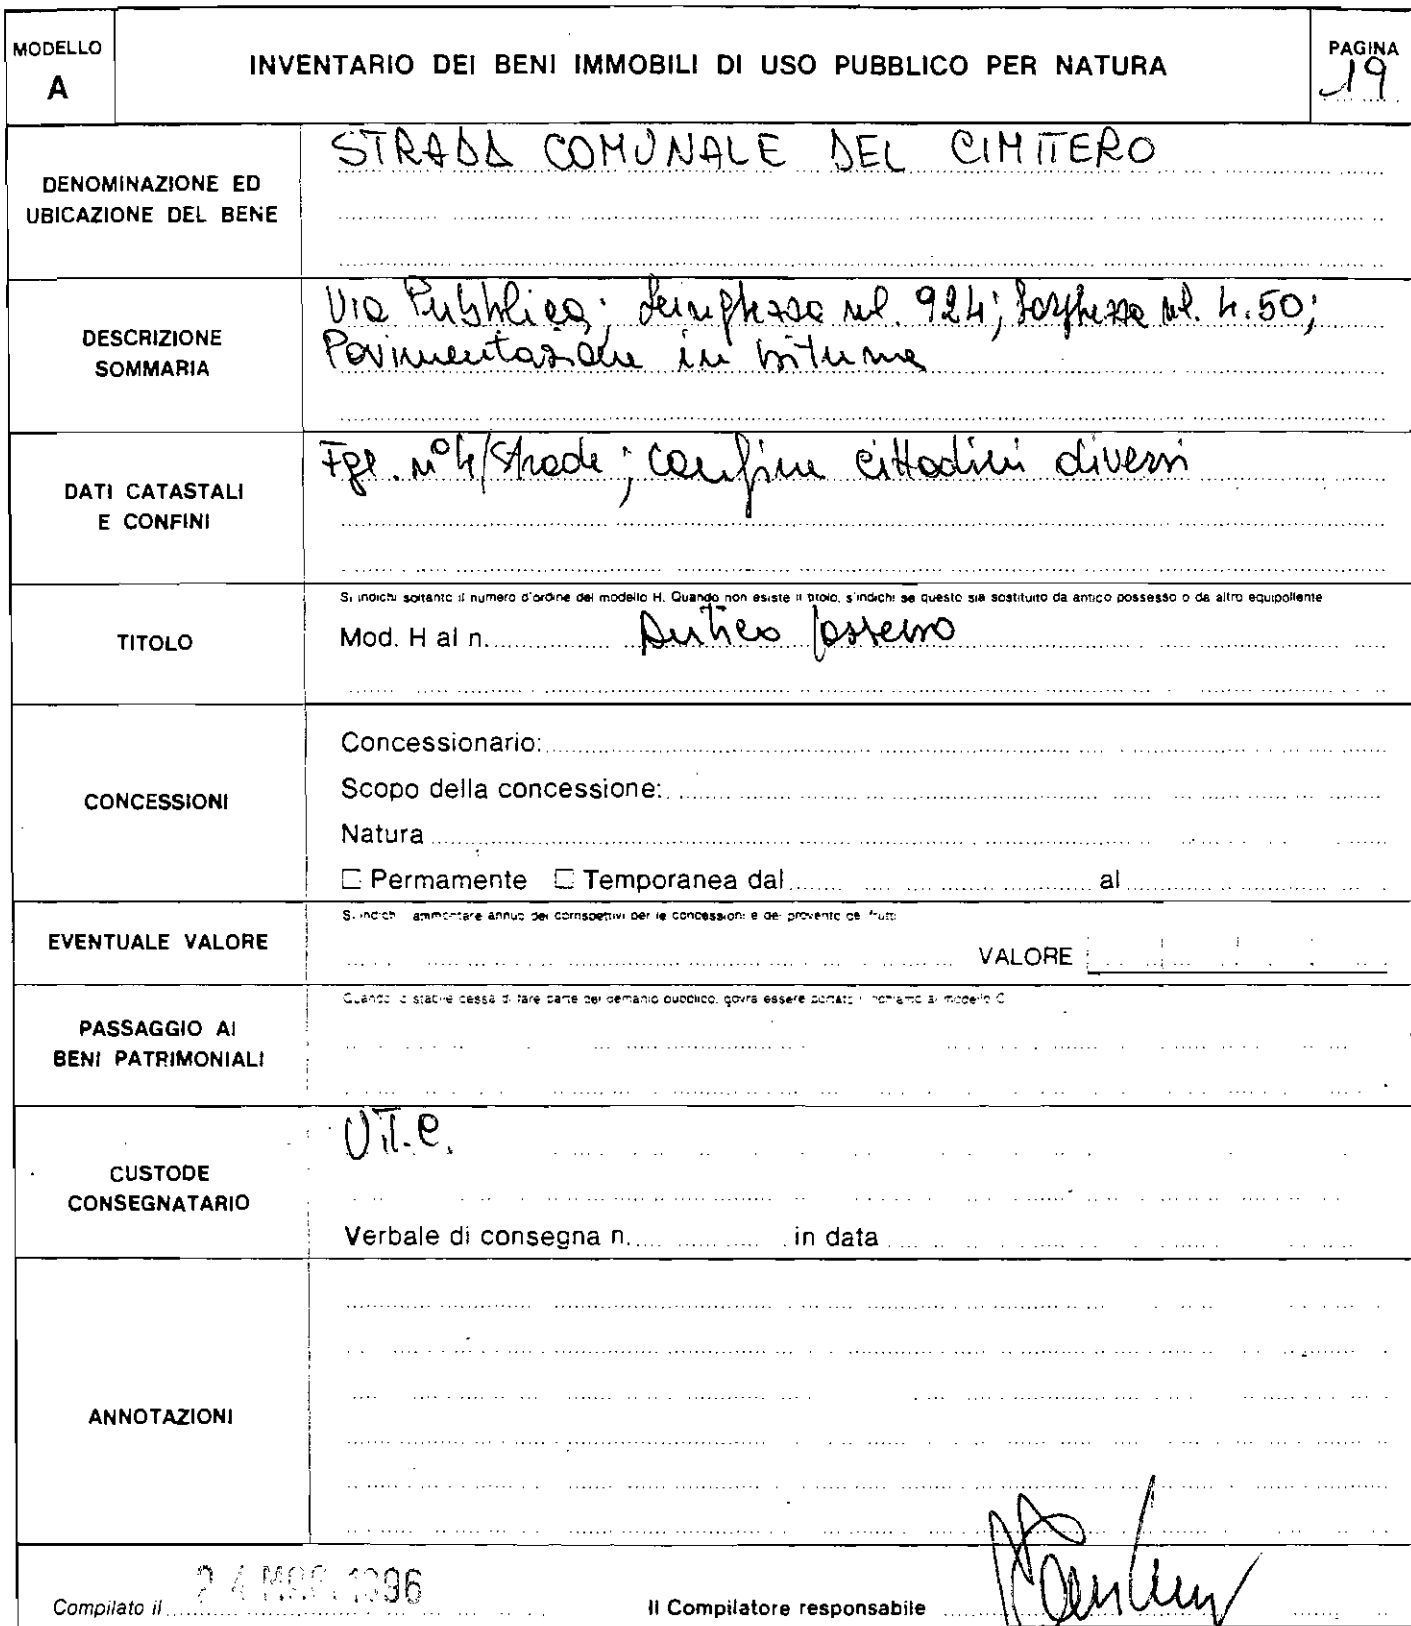 MODELLO
A
INVENTARIO DEI BENI IMMOBILI DI USO PUBBLICO PER NATURA
PAGINA
19
DENOMINAZIONE ED
UBICAZIONE DEL BENE
STRADA COMUNALE DEL CIMITERO
DESCRIZIONE
SOMMARIA
Via Pubblica; lunghezza ml. 924; larghezza ml. 4.50;
Pavimentazione in bitume
DATI CATASTALI
E CONFINI
Fgl. n° 4/Strade; confine cittadini diversi
TITOLO
Si indichi soltanto il numero d'ordine del modello H. Quando non esiste il titolo, s'indichi se questo sia sostituito da antico possesso o da altro equipollente
Mod. H al n. Antico possesso
CONCESSIONI
Concessionario:
Scopo della concessione:
Natura
☐ Permamente ☐ Temporanea dal al
EVENTUALE VALORE
Si indichi l'ammontare annuo dei corrispettivi per le concessioni e del provento dei frutti
VALORE
PASSAGGIO AI
BENI PATRIMONIALI
Quando lo stabile cessa di fare parte del demanio pubblico, dovrà essere portato il richiamo al modello C
CUSTODE
CONSEGNATARIO
U.T.C.
Verbale di consegna n. in data
ANNOTAZIONI
Compilato il 24 MAR. 1996
Il Compilatore responsabile